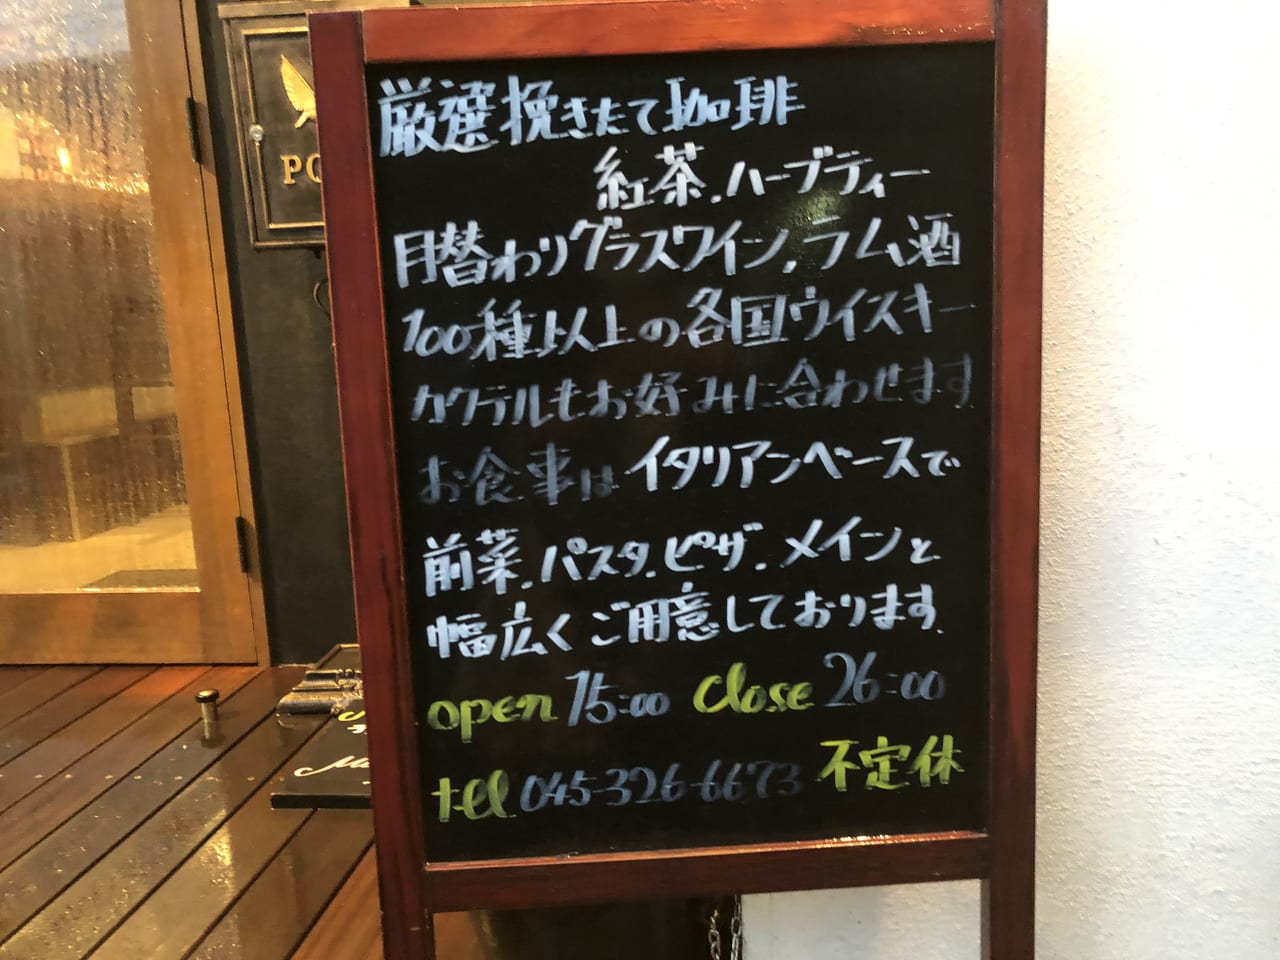 厳選挽きたて珈琲
紅茶.ハーブティー
月替わりグラスワイン.ラム酒
100種以上の各国ウイスキー
カクテルもお好みに合わせます
お食事はイタリアンベースで
前菜.パスタ.ピザ.メインと
幅広くご用意しております.
open 15:00 close 26:00
tel 045-326-6673 不定休
PO